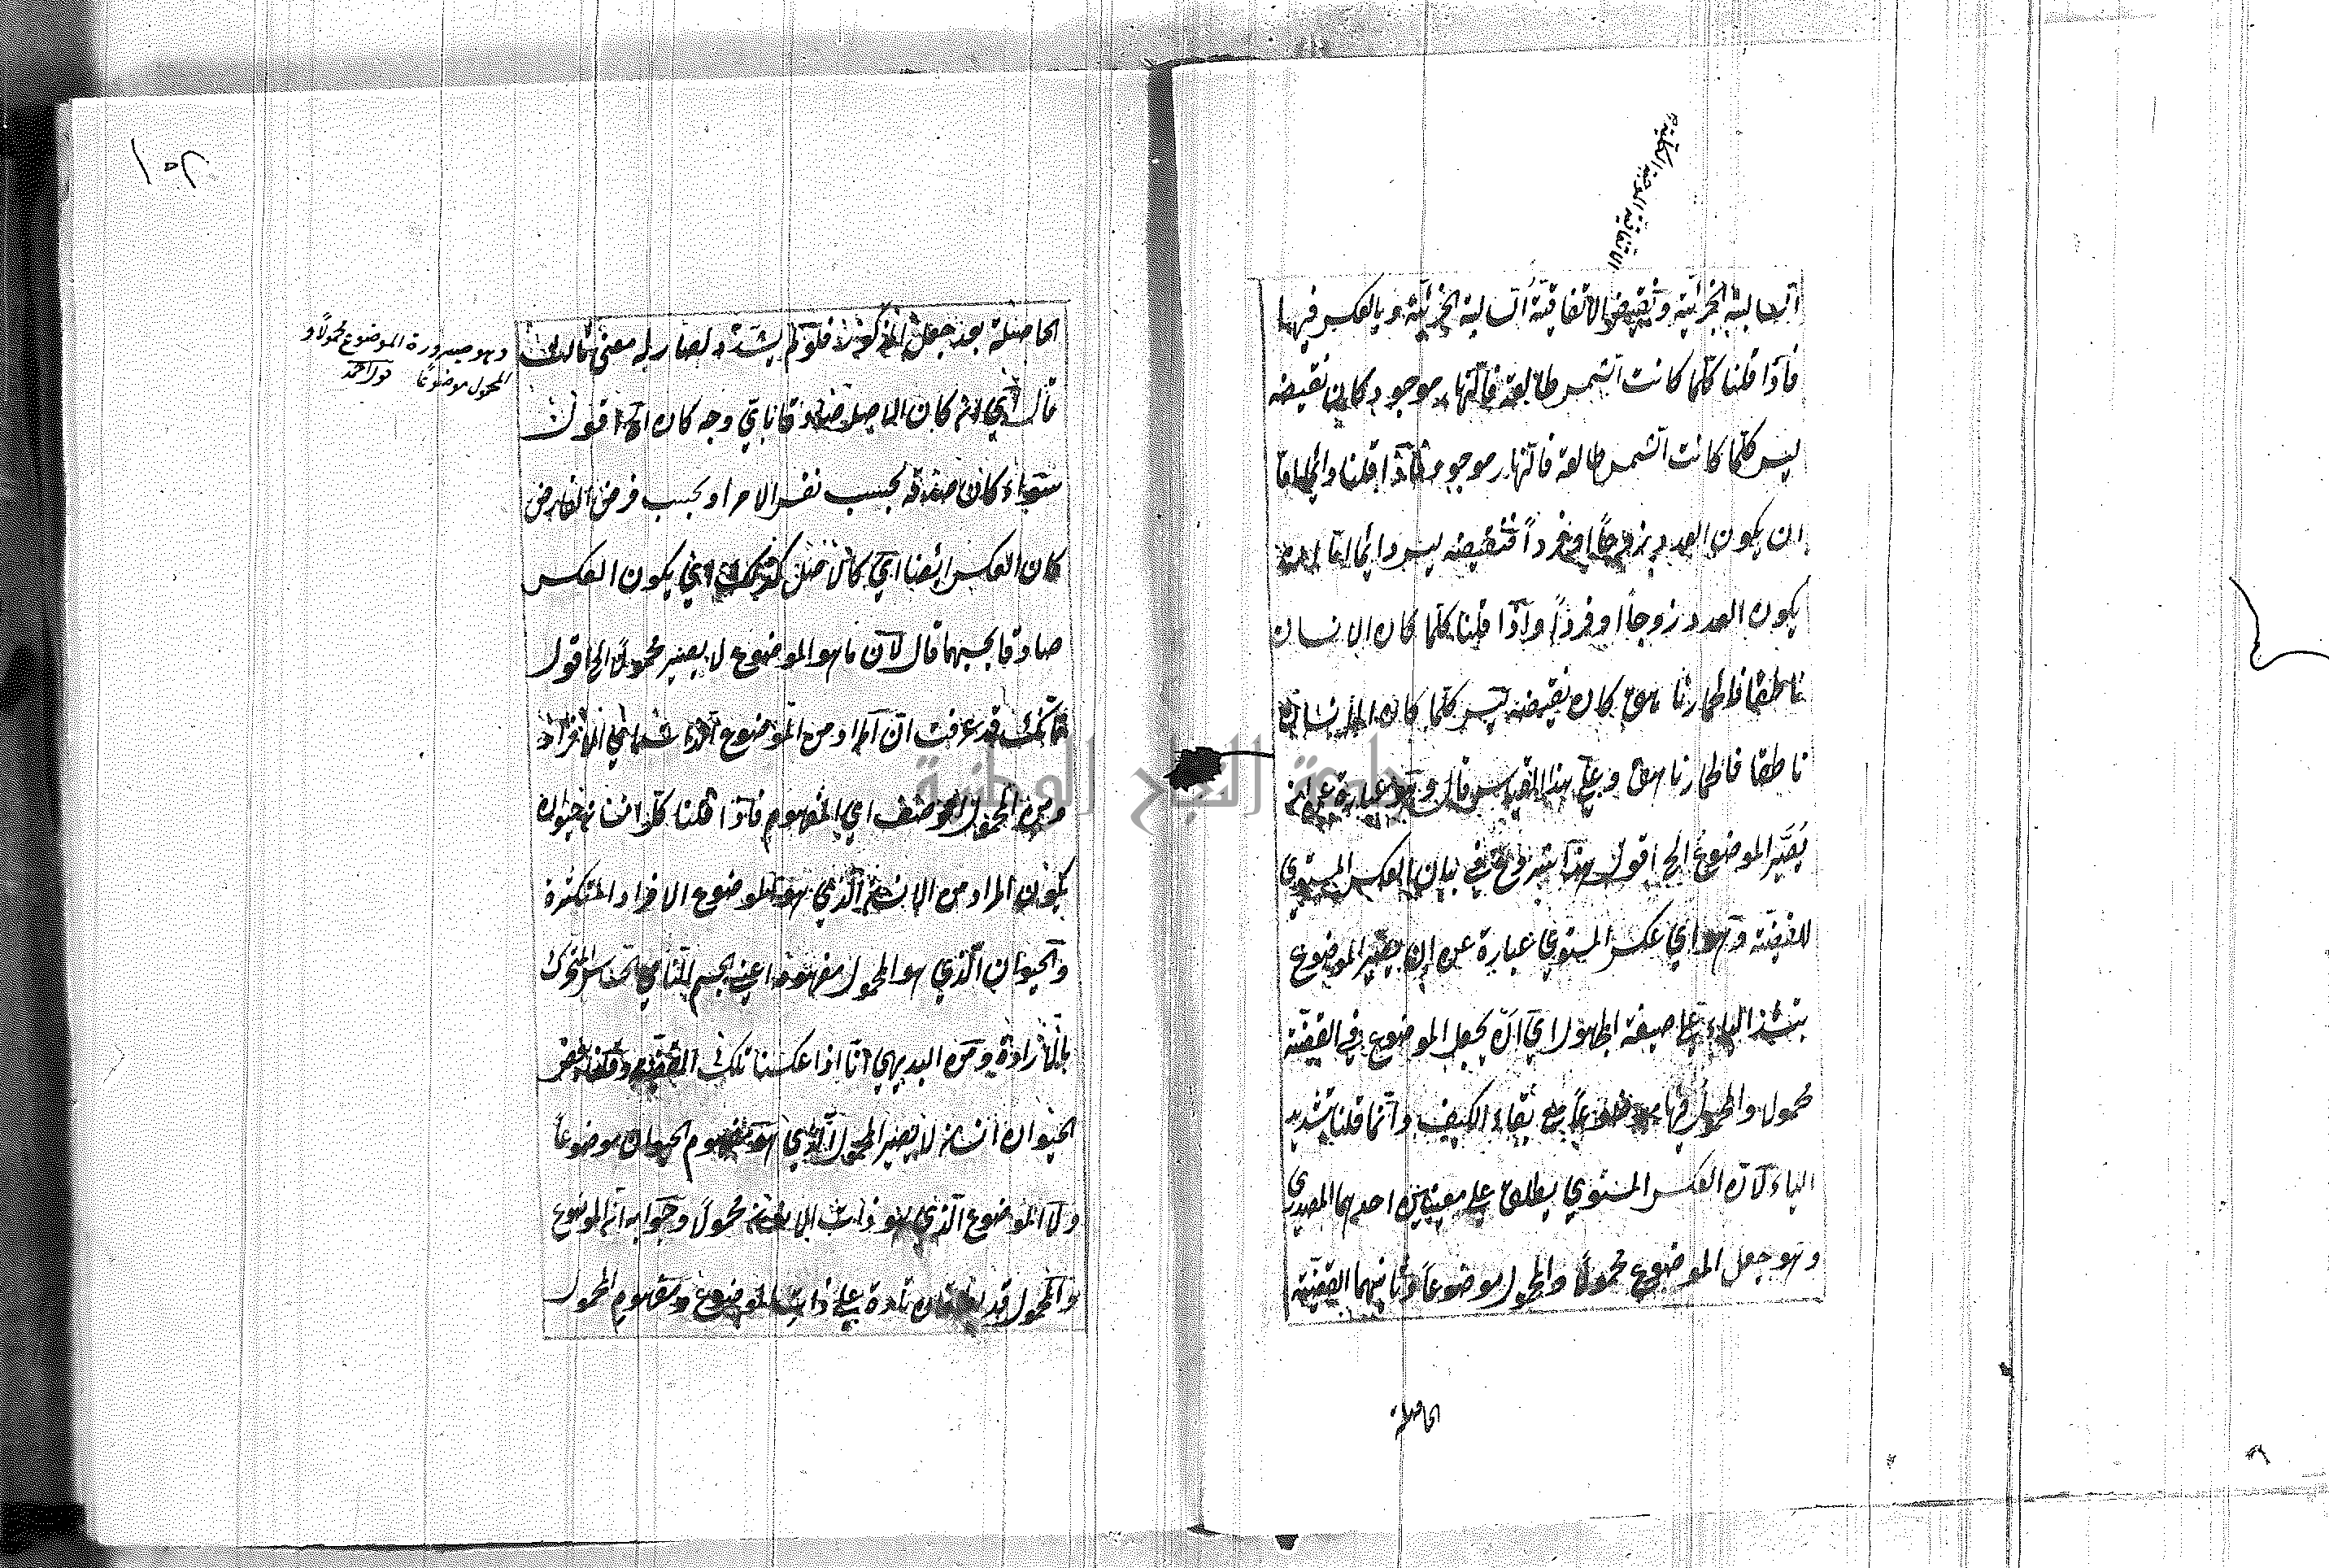 الاتفاقية الموجبة الكلية
السالبة الجزئية ونقيض الاتفاقية السالبة الجزئية وبالعكس فيهما
فاذا قلنا كلما كانت الشمس طالعة فالنهار موجود كان نقيضه
ليس كلما كانت الشمس طالعة فالنهار موجود واذا قلنا دائما اما
ان يكون العدد زوجاً او فرداً فنقيضه ليس دائما اما ان
يكون العدد زوجاً او فرداً واذا قلنا كلما كان الانسان
ناطقا فالحمار ناهق كان نقيضه ليس كلما كان الانسان
ناطقا فالحمار ناهق وعلى هذا القياس قال وهو عبارة عن ان
يُصَيَّر الموضوع الخ اقول هذا شروع في بيان العكس المستوي
للقضية وهو اي عكس المستوي عبارة عن ان يصير الموضوع
بتشديد الياء على صيغة المجهول اي ان يجعل الموضوع في القضية
محمولا والمحمول فيها موضوعاً مع بقاء الكيف وانما قلنا بتشديد
الياء لان العكس المستوي يطلق على معنيين احدهما المصدري
وهو جعل الموضوع محمولاً والمحمول موضوعاً وثانيهما القضية
الحاصلة
١٥٢
الحاصلة بعد جعل المذكور فلو لم يشدد لصار له معنى ثالث
وهو صيرورة الموضوع محمولاً و
المحمول موضوعا نور احمد
قال اي ان كان الاصل صادقا باي وجه كان الخ اقول
سواء كان صدقه بحسب نفس الامر او بحسب فرض الفارض
كان العكس ايضا اي كالاصل كذلك اي يكون العكس
صادقا بحسبهما قال لان ما هو الموضوع لا يصير محمولا الخ اقول
انك قد عرفت ان المراد من الموضوع الذات اي الافراد
ومن المحمول الوصف اي المفهوم فاذا قلنا كل انسان حيوان
يكون المراد من الانسان الذي هو الموضوع الافراد المتكثرة
والحيوان الذي هو المحمول مفهومه اعني الجسم النامي الحساس المتحرك
بالارادة ومن البديهي انا اذا عكسنا تلك القضية وقلنا بعض
الحيوان انسان لا يصير المحمول الذي هو مفهوم الحيوان موضوعاً
ولا الموضوع الذي هو ذات الانسان محمولاً وجوابه ان الموضوع
والمحمول قد يطلقان تارة على ذات الموضوع ومفهوم المحمول
جامعة النجاح الوطنية